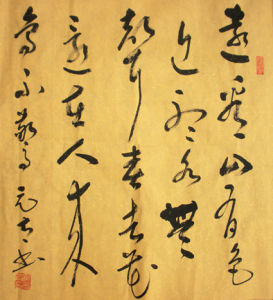 遠看山有色
近聽水無
聲春去花
還在人來
鳥不驚